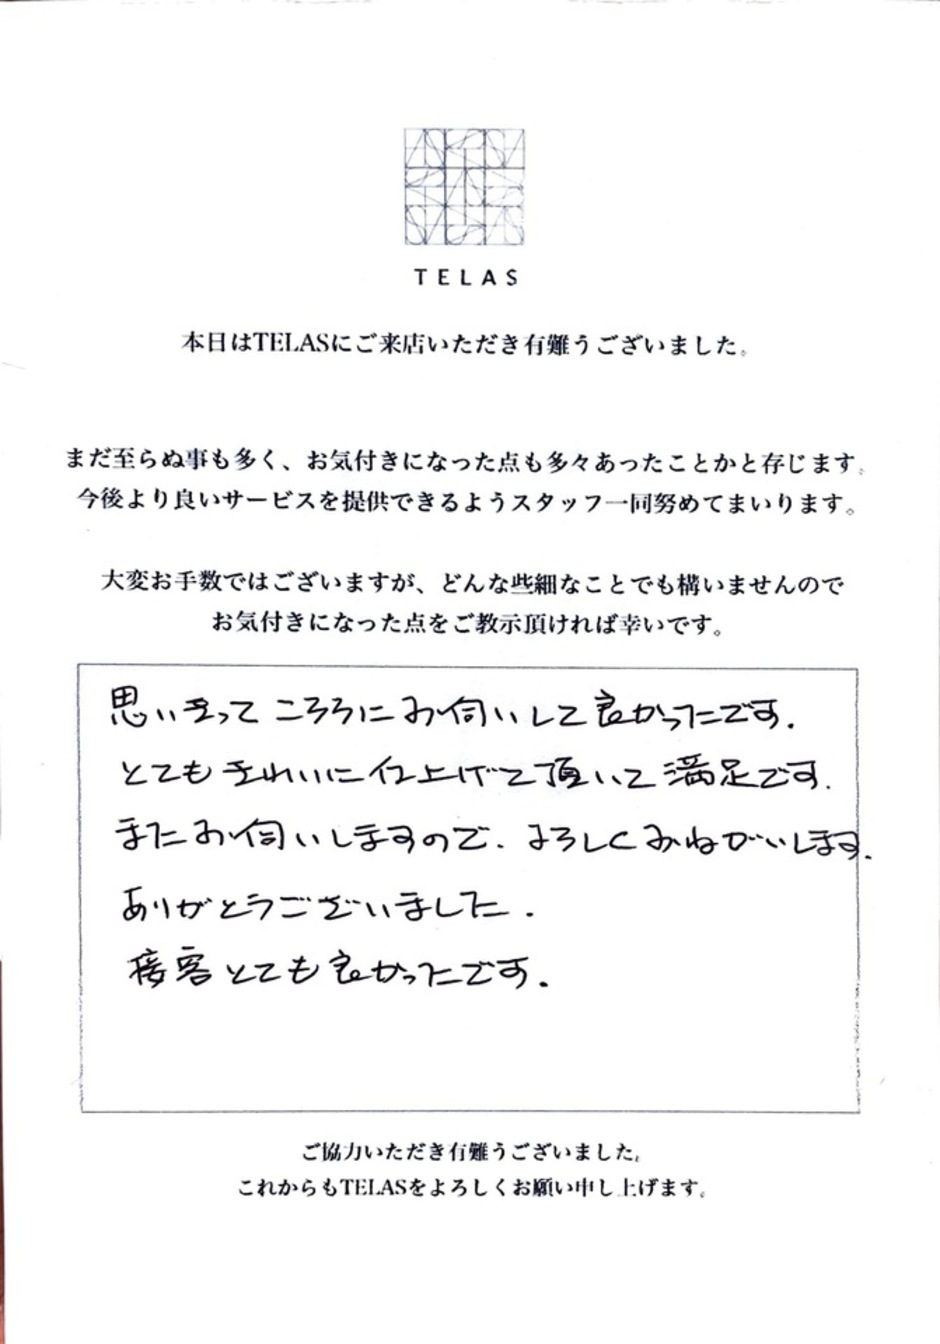 TELAS
本日はTELASにご来店いただき有難うございました。
まだ至らぬ事も多く、お気付きになった点も多々あったことかと存じます。
今後より良いサービスを提供できるようスタッフ一同努めてまいります。
大変お手数ではございますが、どんな些細なことでも構いませんので
お気付きになった点をご教示頂ければ幸いです。
思いきって こちらに お伺いして良かったです.
とてもきれいに仕上げて頂いて満足です.
またお伺いしますので. よろしくおねがいします.
ありがとうございました.
接客とても良かったです.
ご協力いただき有難うございました。
これからもTELASをよろしくお願い申し上げます。